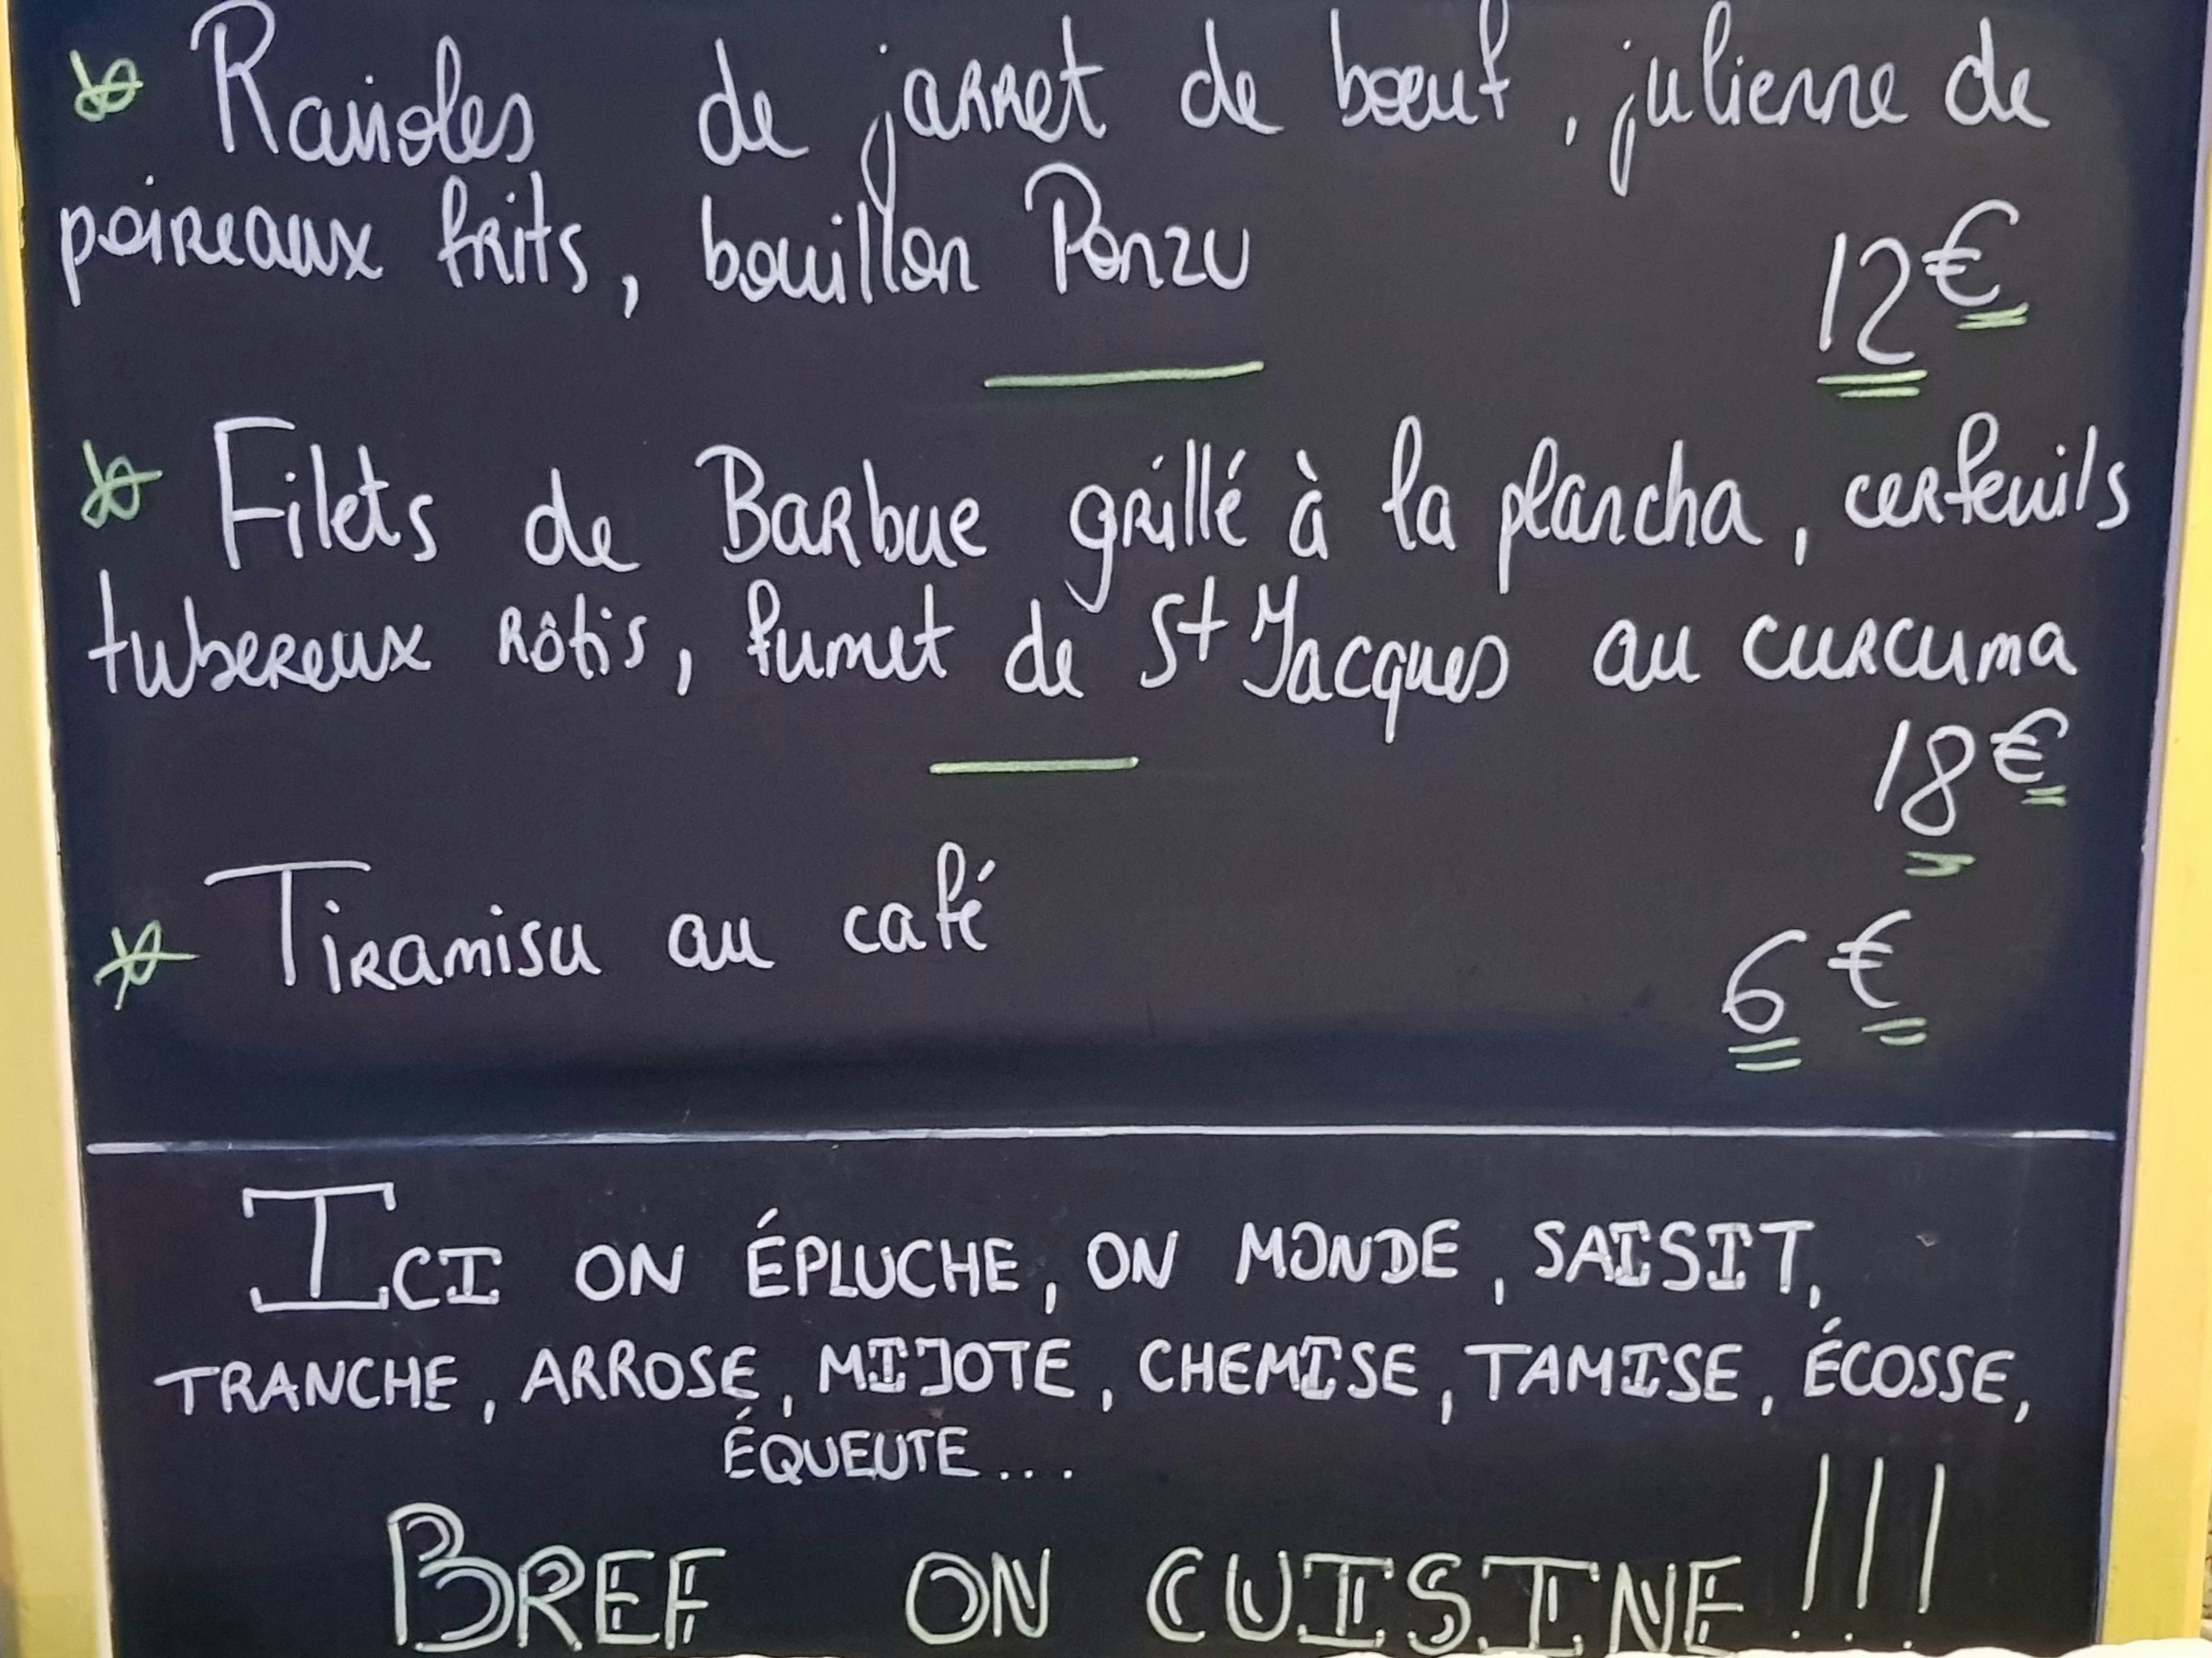 Ravioles de jarret de boeuf, julienne de
poireaux frits, bouillon Ponzu
12€
Filets de Barbue grillé à la plancha, cerfeuils
tubereux rôtis, fumet de St Jacques au curcuma
18€
Tiramisu au café
6€
ICI ON ÉPLUCHE, ON MONDE, SAISIT,
TRANCHE, ARROSE, MIJOTE, CHEMISE, TAMISE, ÉCOSSE,
ÉQUEUTE...
BREF ON CUISINE!!!